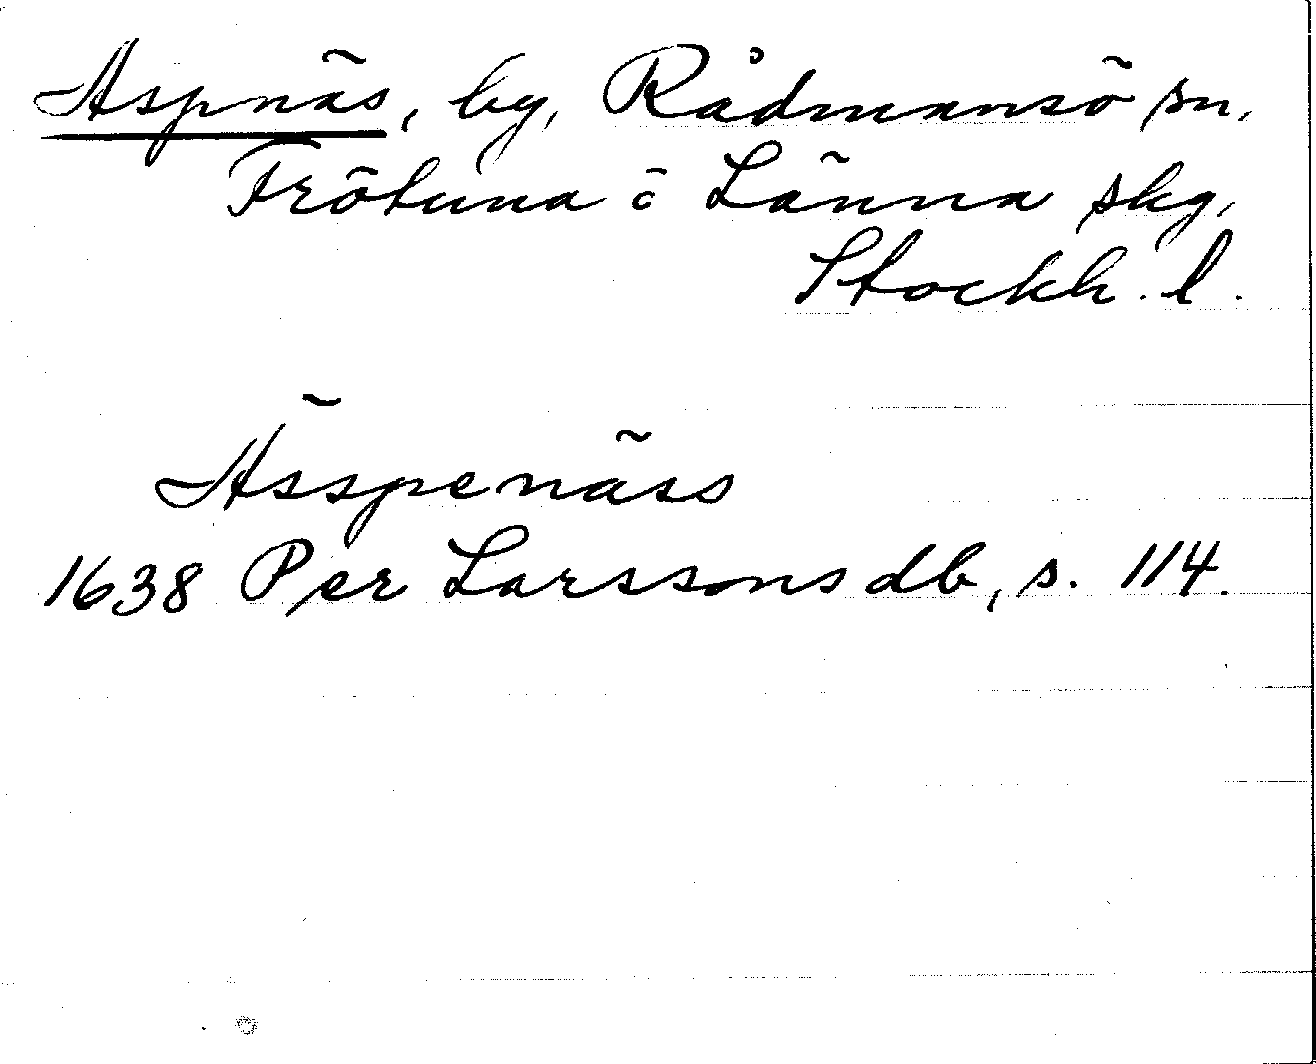 Aspnäs, by, Rådmansö sn,
Frötuna o Länna skg,
Stockh. l.
Ässpenäss
1638 Per Larssons db, s. 114.